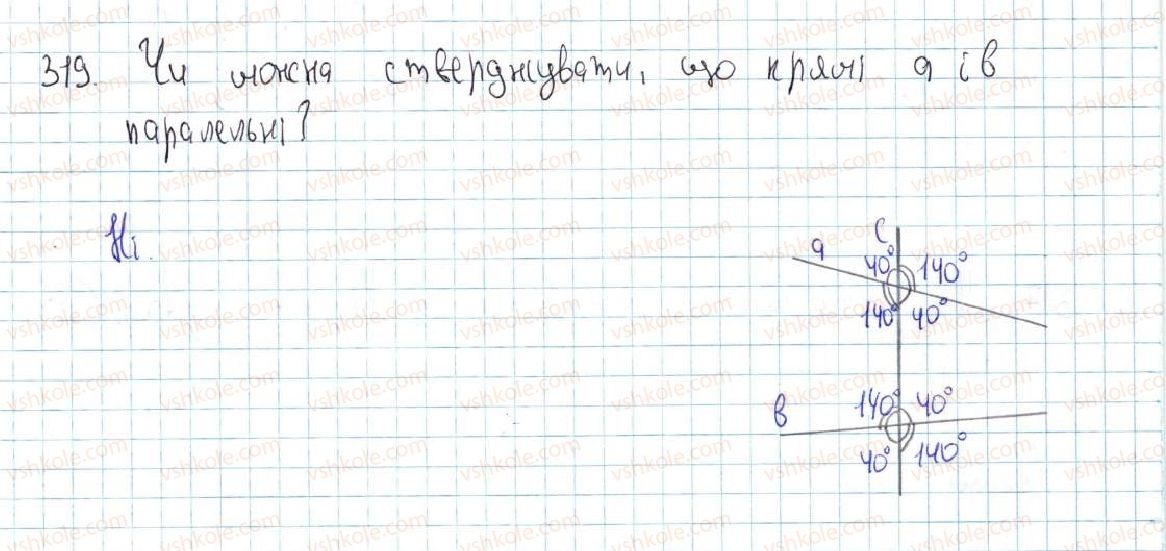 319. Чи можна стверджувати, що прямі a і b
паралельні?
Ні.
c
a
40° 140°
140° 40°
b
140° 40°
40° 140°